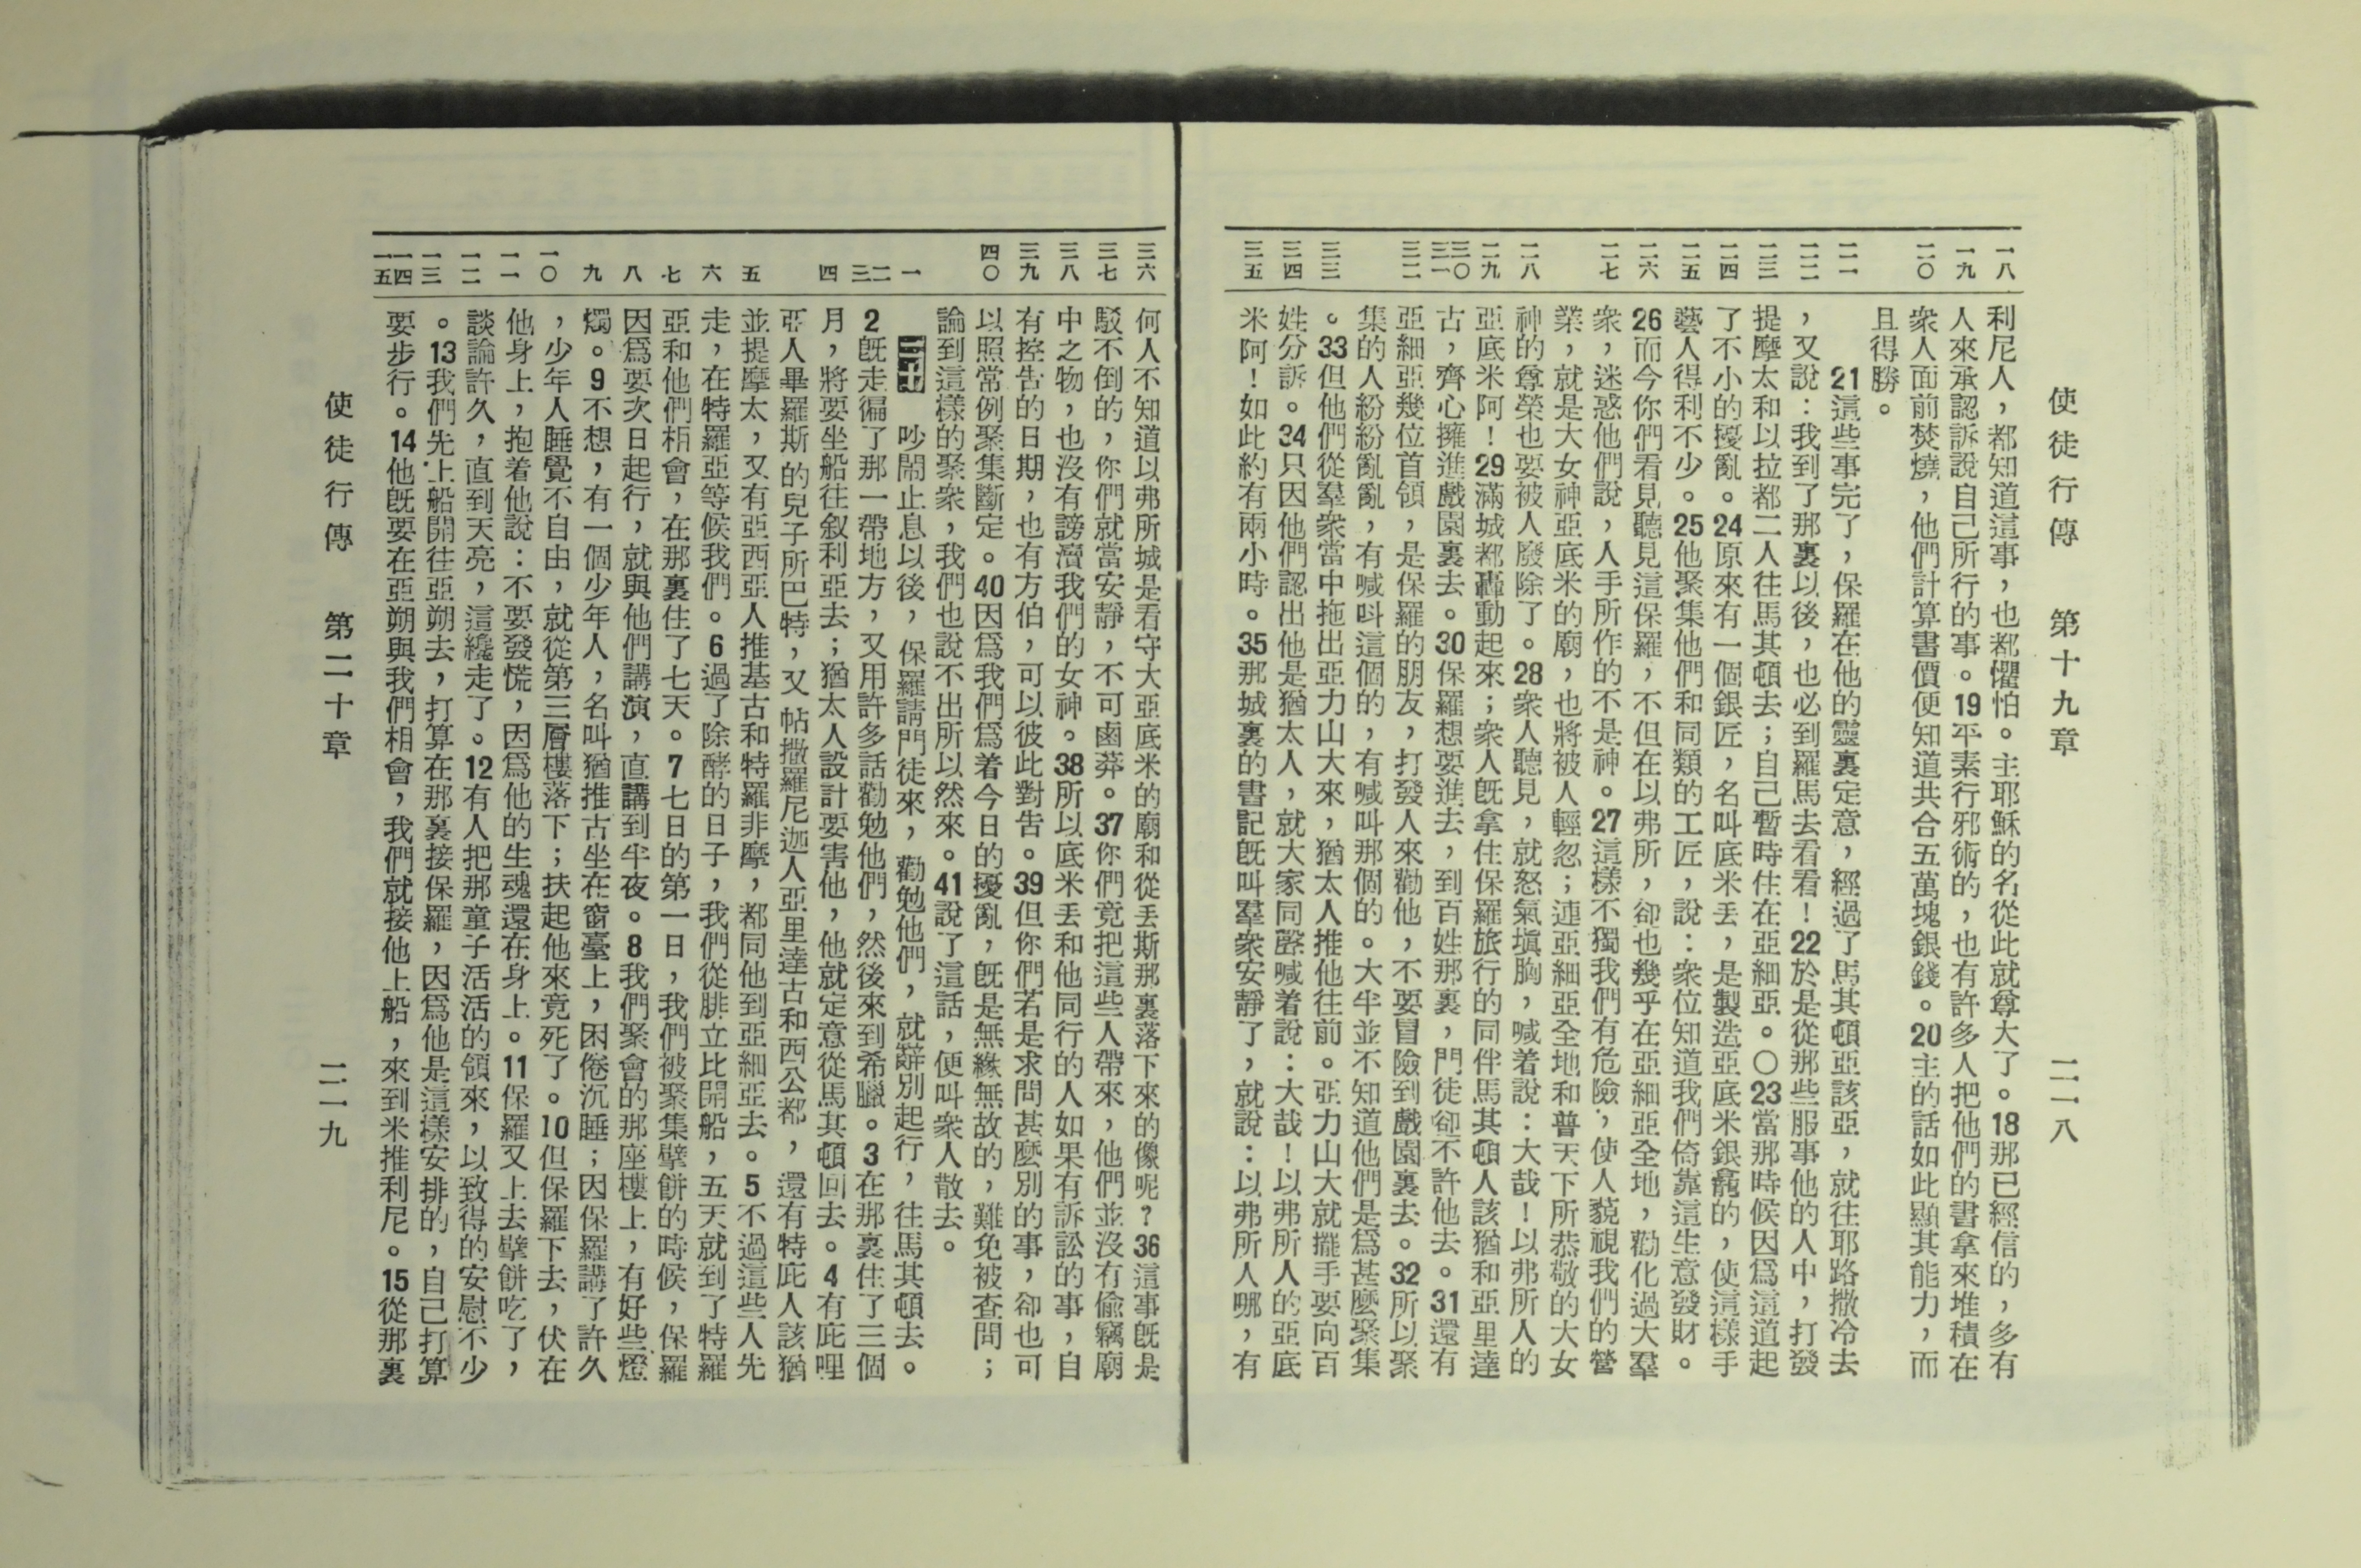 使徒行傳 第十九章 二一八
一八 一九 二〇 二一 二二 二三 二四 二五 二六 二七 二八 二九 三〇 三一 三二 三三 三四 三五
利尼人，都知道這事，也都懼怕。主耶穌的名從此就尊大了。18那已經信的，多有
人來承認訴說自己所行的事。19平素行邪術的，也有許多人把他們的書拿來堆積在
衆人面前焚燒，他們計算書價便知道共合五萬塊銀錢。20主的話如此顯其能力，而
且得勝。
21這些事完了，保羅在他的靈裏定意，經過了馬其頓亞該亞，就往耶路撒冷去
，又說：我到了那裏以後，也必到羅馬去看看！22於是從那些服事他的人中，打發
提摩太和以拉都二人往馬其頓去；自己暫時住在亞細亞。〇23當那時候因爲這道起
了不小的擾亂。24原來有一個銀匠，名叫底米丟，是製造亞底米銀龕的，使這樣手
藝人得利不少。25他聚集他們和同類的工匠，說：衆位知道我們倚靠這生意發財。
26而今你們看見聽見這保羅，不但在以弗所，卻也幾乎在亞細亞全地，勸化過大羣
衆，迷惑他們說，人手所作的不是神。27這樣不獨我們有危險，使人藐視我們的營
業，就是大女神亞底米的廟，也將被人輕忽；連亞細亞全地和普天下所恭敬的大女
神的尊榮也要被人廢除了。28衆人聽見，就怒氣塡胸，喊着說：大哉！以弗所人的
亞底米阿！29滿城都轟動起來；衆人旣拿住保羅旅行的同伴馬其頓人該猶和亞里達
古，齊心擁進戲園裏去。30保羅想要進去，到百姓那裏，門徒卻不許他去。31還有
亞細亞幾位首領，是保羅的朋友，打發人來勸他，不要冒險到戲園裏去。32所以聚
集的人紛紛亂亂，有喊呌這個的，有喊叫那個的。大半並不知道他們是爲甚麼聚集
。33但他們從羣衆當中拖出亞力山大來，猶太人推他往前。亞力山大就擺手要向百
姓分訴。34只因他們認出他是猶太人，就大家同聲喊着說：大哉！以弗所人的亞底
米阿！如此約有兩小時。35那城裏的書記旣叫羣衆安靜了，就說：以弗所人哪，有
三六 三七 三八 三九 四〇 一 二 三 四 五 六 七 八 九 一〇 一一 一二 一三 一四 一五
何人不知道以弗所城是看守大亞底米的廟和從丟斯那裏落下來的像呢？36這事旣是
駁不倒的，你們就當安靜，不可鹵莽。37你們竟把這些人帶來，他們並沒有偷竊廟
中之物，也沒有謗瀆我們的女神。38所以底米丢和他同行的人如果有訴訟的事，自
有控告的日期，也有方伯，可以彼此對告。39但你們若是求問甚麼別的事，卻也可
以照常例聚集斷定。40因爲我們爲着今日的擾亂，旣是無緣無故的，難免被查問；
論到這樣的聚衆，我們也說不出所以然來。41說了這話，便叫衆人散去。
二十 吵鬧止息以後，保羅請門徒來，勸勉他們，就辭別起行，往馬其頓去。
2旣走徧了那一帶地方，又用許多話勸勉他們，然後來到希臘。3在那裏住了三個
月，將要坐船往叙利亞去；猶太人設計要害他，他就定意從馬其頓回去。4有庇哩
亞人畢羅斯的兒子所巴特，又帖撒羅尼迦人亞里達古和西公都，還有特庇人該猶
並提摩太，又有亞西亞人推基古和特羅非摩，都同他到亞細亞去。5不過這些人先
走，在特羅亞等候我們。6過了除酵的日子，我們從腓立比開船，五天就到了特羅
亞和他們相會，在那裏住了七天。7七日的第一日，我們被聚集擘餅的時候，保羅
因爲要次日起行，就與他們講演，直講到半夜。8我們聚會的那座樓上，有好些燈
燭。9不想，有一個少年人，名叫猶推古坐在窗臺上，困倦沉睡；因保羅講了許久
，少年人睡覺不自由，就從第三層樓落下；扶起他來竟死了。10但保羅下去，伏在
他身上，抱着他說：不要發慌，因爲他的生魂還在身上。11保羅又上去擘餅吃了，
談論許久，直到天亮，這纔走了。12有人把那童子活活的領來，以致得的安慰不少
。13我們先上船開往亞朔去，打算在那裏接保羅，因爲他是這樣安排的，自己打算
要步行。14他旣要在亞朔與我們相會，我們就接他上船，來到米推利尼。15從那裏
使徒行傳 第二十章 二一九